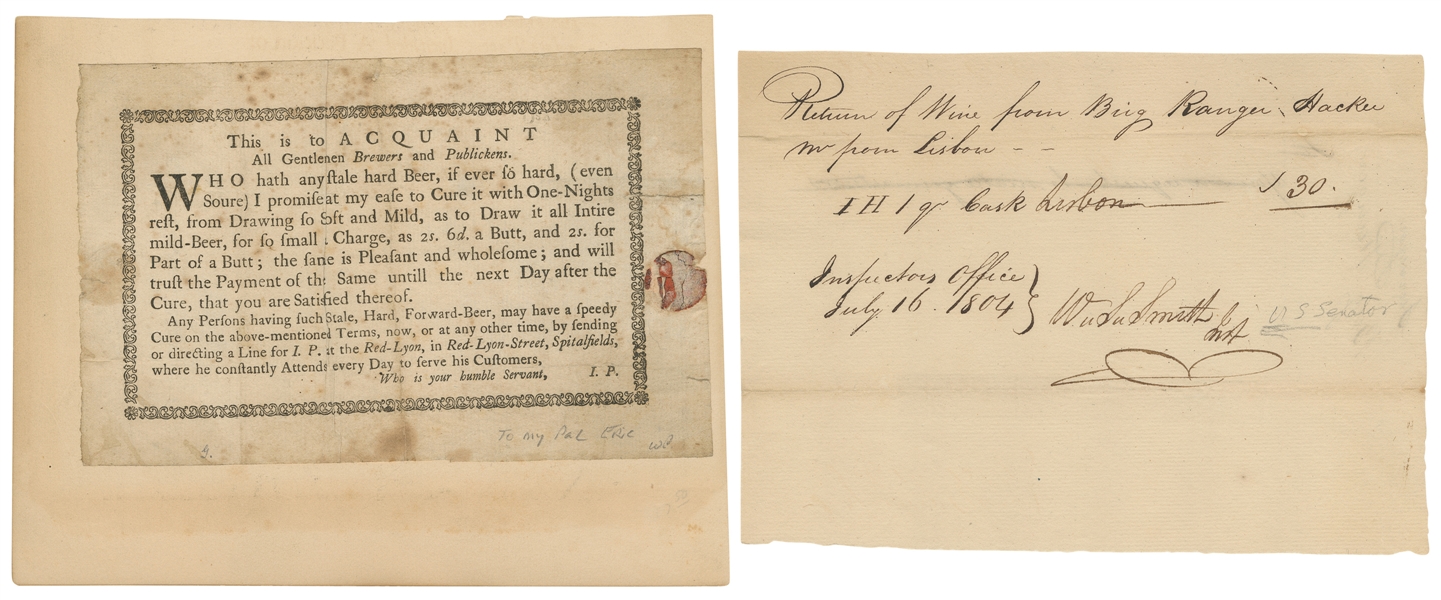 This is to ACQUAINT
All Gentlenen Brewers and Publickens.
WHO hath any ſtale hard Beer, if ever ſo hard, (even
Soure) I promiſe at my eaſe to Cure it with One-Nights
reſt, from Drawing ſo Soft and Mild, as to Draw it all Intire
mild-Beer, for ſo ſmall Charge, as 2s. 6d. a Butt, and 2s. for
Part of a Butt; the ſane is Pleaſant and wholeſome; and will
truſt the Payment of the Same untill the next Day after the
Cure, that you are Satisfied thereof.
Any Perſons having ſuch Stale, Hard, Forward-Beer, may have a ſpeedy
Cure on the above-mentioned Terms, now, or at any other time, by ſending
or directing a Line for I. P. at the Red-Lyon, in Red-Lyon-Street, Spitalfields,
where he conſtantly Attends every Day to ſerve his Cuſtomers,
Who is your humble Servant, I. P.
To my Pal Eric
Return of Wine from Brig Ranger, Hacker
mr from Lisbon - -
I H 1 qr Cask Lisbon 30.
Inspectors Office
July 16. 1804
Wm S Smith
US Senator